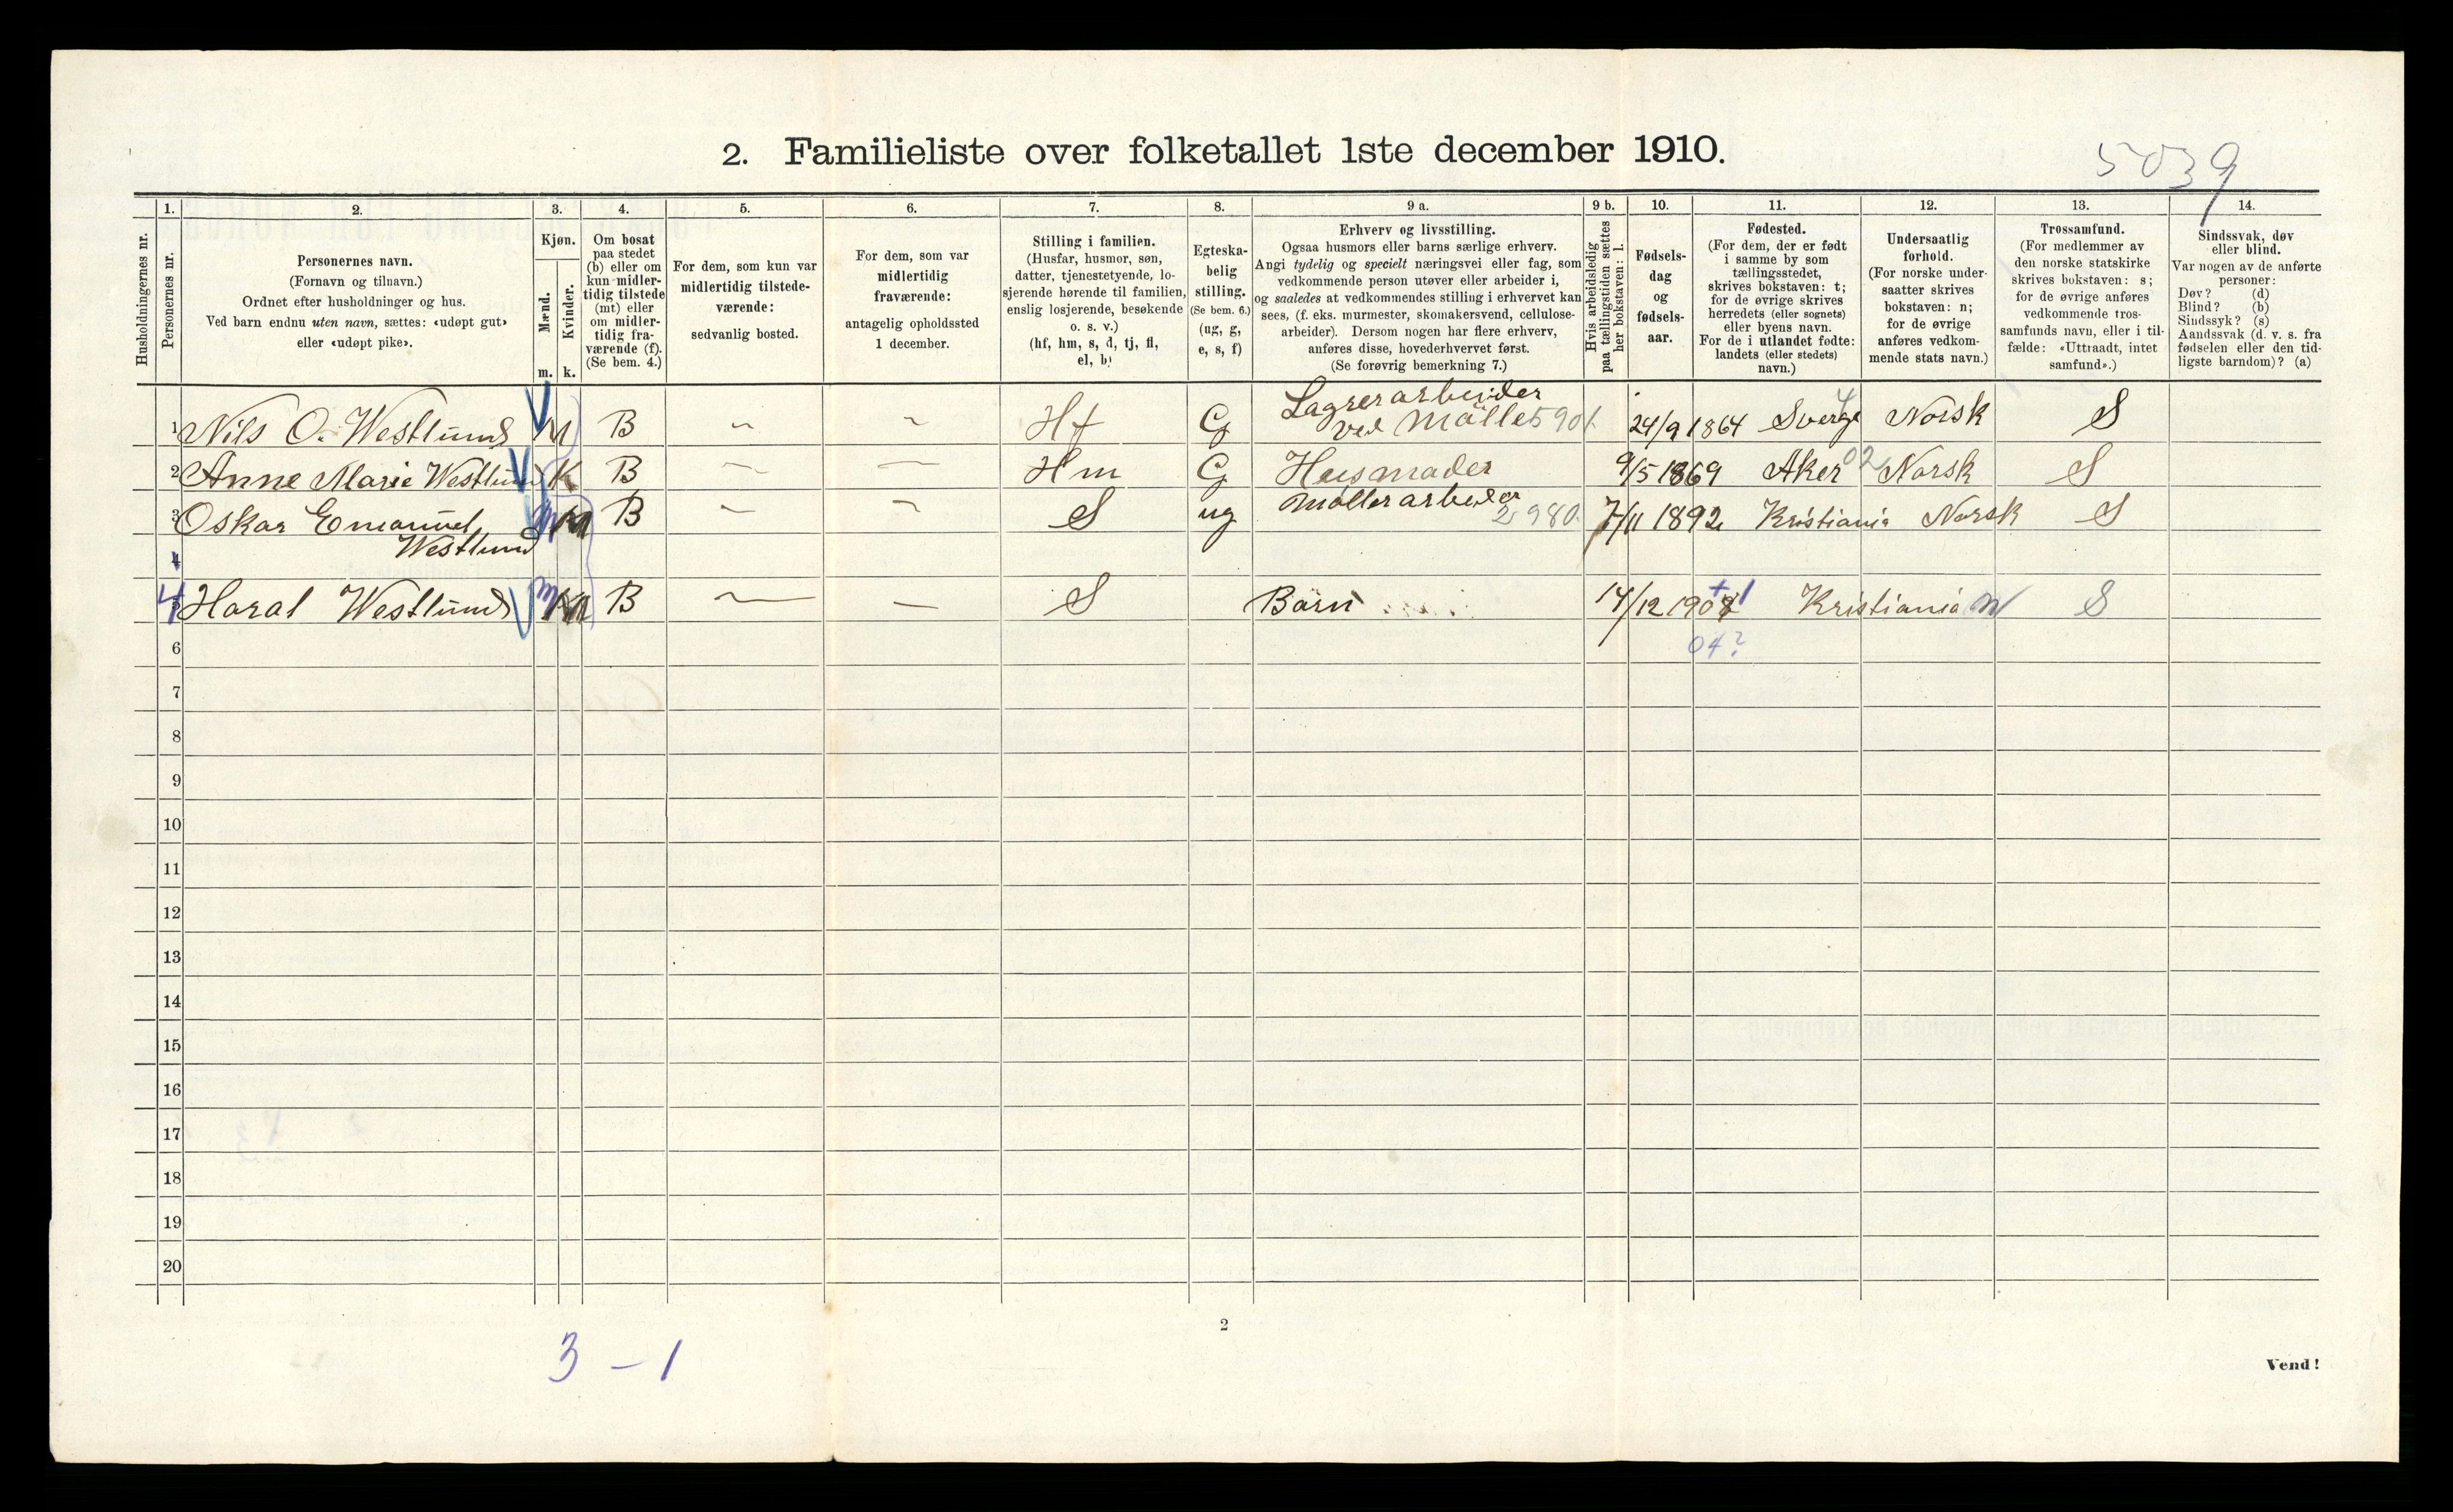 2. Familieliste over folketallet 1ste december 1910.
5039
Husholdningernes nr.
1.
Personernes nr.
2.
Personernes navn.
(Fornavn og tilnavn.)
Ordnet efter husholdninger og hus.
Ved barn endnu uten navn, sættes: «udøpt gut»
eller «udøpt pike».
3.
Kjøn.
Mænd.
Kvinder.
m. k.
4.
Om bosat
paa stedet
(b) eller om
kun midler-
tidig tilstede
(mt) eller
om midler-
tidig fra-
værende (f).
(Se bem. 4.)
5.
For dem, som kun var
midlertidig tilstede-
værende:
sedvanlig bosted.
6.
For dem, som var
midlertidig
fraværende:
antagelig opholdssted
1 december.
7.
Stilling i familien.
(Husfar, husmor, søn,
datter, tjenestetyende, lo-
sjerende hørende til familien,
enslig losjerende, besøkende
o. s. v.)
(hf, hm, s, d, tj, fl,
el, b)
8.
Egteska-
belig
stilling.
(Se bem. 6.)
(ug, g,
e, s, f)
9 a.
Erhverv og livsstilling.
Ogsaa husmors eller barns særlige erhverv.
Angi tydelig og specielt næringsvei eller fag, som
vedkommende person utøver eller arbeider i,
og saaledes at vedkommendes stilling i erhvervet kan
sees, (f. eks. murmester, skomakersvend, cellulose-
arbeider). Dersom nogen har flere erhverv,
anføres disse, hovederhvervet først.
(Se forøvrig bemerkning 7.)
9 b.
Hvis arbeidsledig
paa tællingstiden sættes
her bokstaven: l.
10.
Fødsels-
dag
og
fødsels-
aar.
11.
Fødested.
(For dem, der er født
i samme by som
tællingsstedet,
skrives bokstaven: t;
for de øvrige skrives
herredets (eller sognets)
eller byens navn.
For de i utlandet fødte:
landets (eller stedets)
navn.)
12.
Undersaatlig
forhold.
(For norske under-
saatter skrives
bokstaven: n;
for de øvrige
anføres vedkom-
mende stats navn.)
13.
Trossamfund.
(For medlemmer av
den norske statskirke
skrives bokstaven: s;
for de øvrige anføres
vedkommende tros-
samfunds navn, eller i til-
fælde: «Uttraadt, intet
samfund».)
14.
Sindssvak, døv
eller blind.
Var nogen av de anførte
personer:
Døv? (d)
Blind? (b)
Sindssyk? (s)
Aandssvak (d. v. s. fra
fødselen eller den tid-
ligste barndom)? (a)
Lagrerarbeider
1 Nils O. Westlund M B Hf G ved Mølle 5901 24/9 1864 Sverge 4 Norsk S
2 Anne Marie Westlund K B Hm G Husmader 9/5 1869 Aker 02 Norsk S
3 Oskar Emanuel m B S ug Møllerarbeider 2980 7/11 1892 Kristiania Norsk S
Westlund
4
4 5 Haral Westlund m B S Barn 14/12 1908 +1 Kristiania N S
6 04?
7
8
9
10
11
12
13
14
15
16
17
18
19
20
2
3 – 1
Vend!